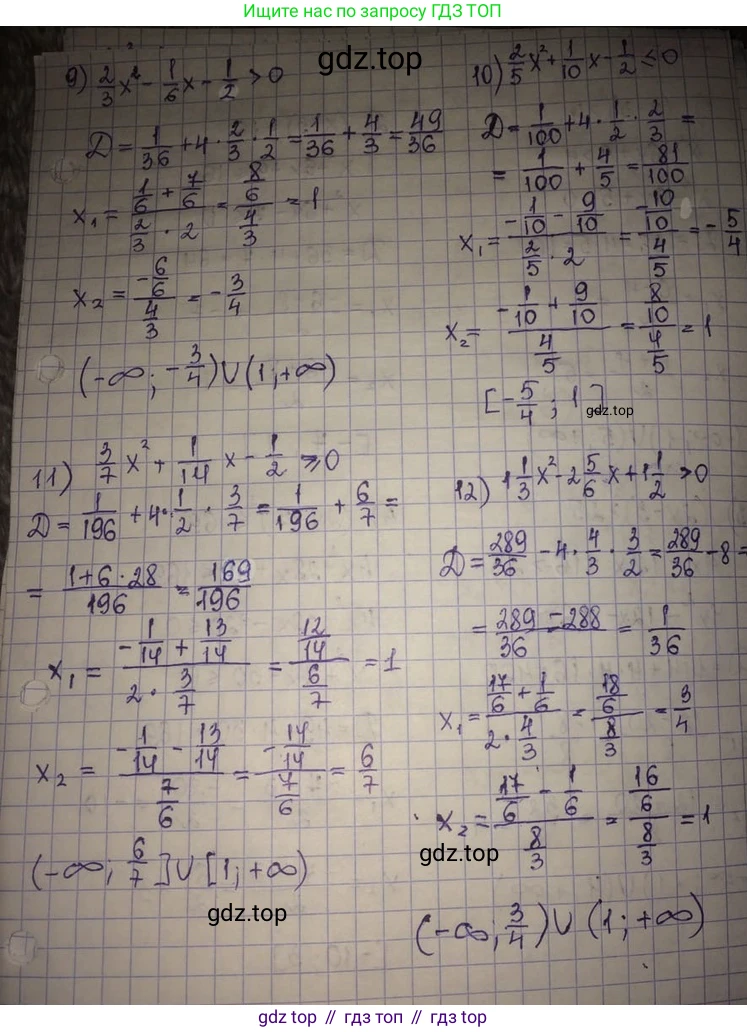 Ищите нас по запросу ГДЗ ТОП
gdz.top
9) 2/3 x² - 1/6 x - 1/2 > 0
Д = 1/36 + 4 · 2/3 · 1/2 = 1/36 + 4/3 = 49/36
x₁ = (1/6 + 7/6)/(2/3 · 2) = (8/6)/(4/3) = 1
x₂ = (-6/6)/(4/3) = -3/4
(-∞; -3/4) ∪ (1; +∞)
10) 2/5 x² + 1/10 x - 1/2 ≤ 0
Д = 1/100 + 4 · 1/2 · 2/3 =
= 1/100 + 4/5 = 81/100
x₁ = (-1/10 - 9/10)/(2/5 · 2) = (-10/10)/(4/5) = -5/4
x₂ = (-1/10 + 9/10)/(4/5) = (8/10)/(4/5) = 1
[-5/4; 1]
gdz.top
11) 3/7 x² + 1/14 x - 1/2 ⩾ 0
Д = 1/196 + 4 · 1/2 · 3/7 = 1/196 + 6/7 =
= (1+6·28)/196 = 169/196
x₁ = (-1/14 + 13/14)/(2 · 3/7) = (12/14)/(6/7) = 1
x₂ = (-1/14 - 13/14)/(7/6) = (-14/14)/(7/6) = 6/7
(-∞; 6/7] ∪ [1; +∞)
gdz.top
12) 1 1/3 x² - 2 5/6 x + 1 1/2 > 0
Д = 289/36 - 4 · 4/3 · 3/2 = 289/36 - 8 =
= (289 - 288)/36 = 1/36
x₁ = (17/6 + 1/6)/(2 · 4/3) = (18/6)/(8/3) = 3/4
x₂ = (17/6 - 1/6)/(8/3) = (16/6)/(8/3) = 1
gdz.top
(-∞; 3/4) ∪ (1; +∞)
gdz top // гдз топ // gdz.top